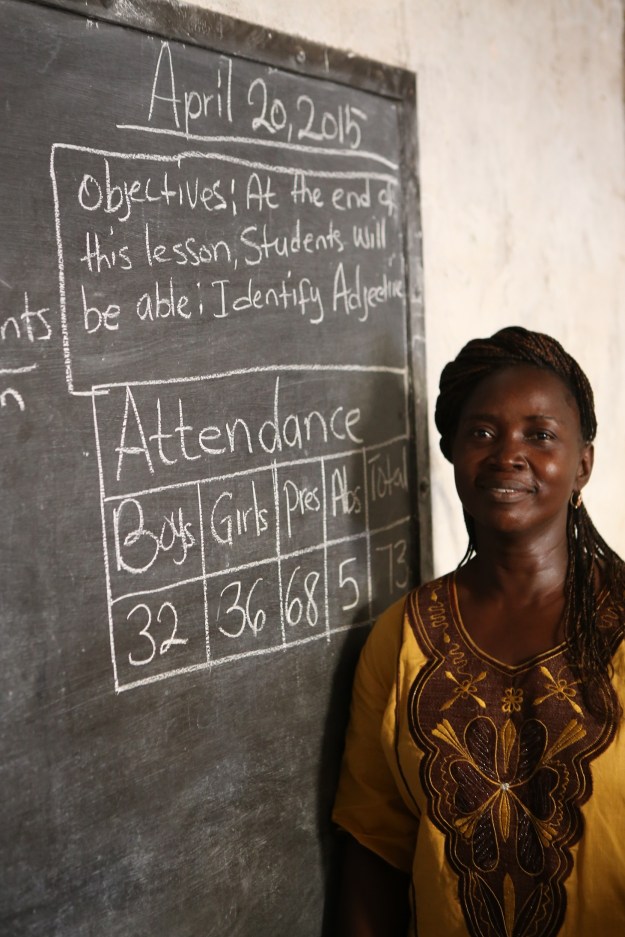 April 20, 2015
Objectives: At the end of
this lesson, Students will
be able: Identify Adjective
nts
n
Attendance
Boys Girls Pres Abs Total
32 36 68 5 73